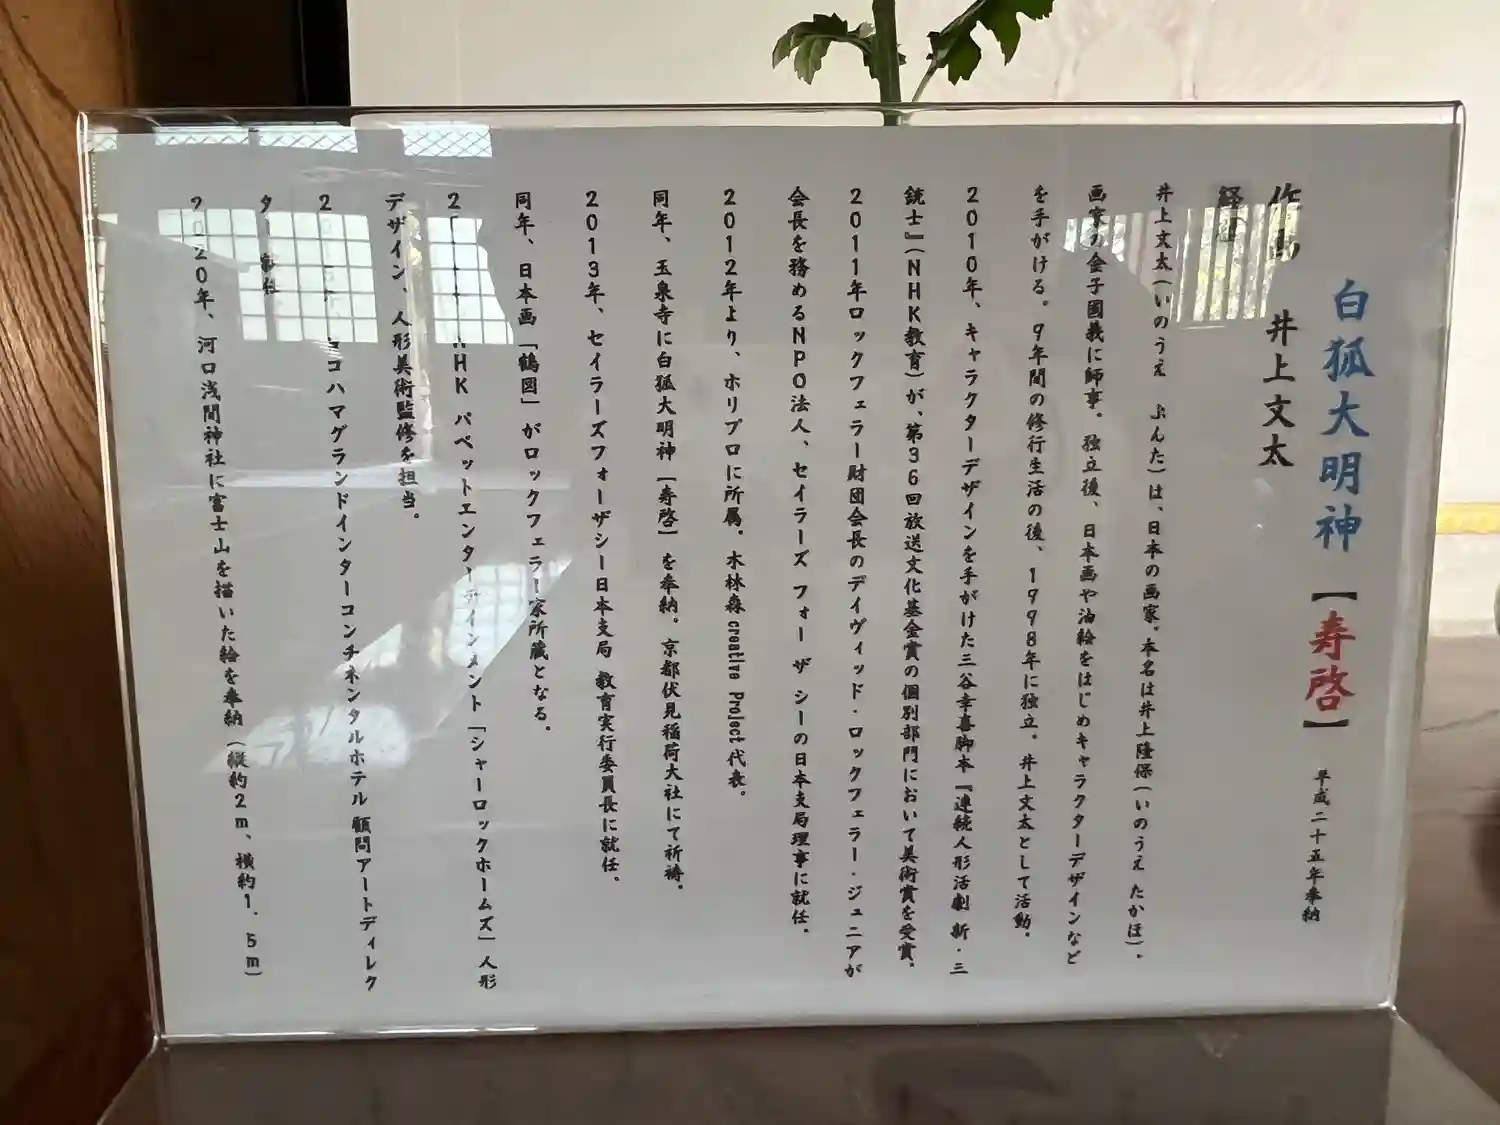 白狐大明神【寿啓】 平成二十五年奉納
井上文太
井上文太(いのうえ ぶんた)は、日本の画家。本名は井上隆保(いのうえ たかほ)。
画家の金子國義に師事。独立後、日本画や油絵をはじめキャラクターデザインなど
を手がける。9年間の修行生活の後、1998年に独立。井上文太として活動。
2010年、キャラクターデザインを手がけた三谷幸喜脚本『連続人形活劇 新・三
銃士』(NHK教育)が、第36回放送文化基金賞の個別部門において美術賞を受賞。
2011年ロックフェラー財団会長のデイヴィッド・ロックフェラー・ジュニアが
会長を務めるNPO法人、セイラーズ フォー ザ シーの日本支局理事に就任。
2012年より、ホリプロに所属。木林森 creative Project 代表。
同年、玉泉寺に白狐大明神[寿啓]を奉納。京都伏見稲荷大社にて祈祷。
2013年、セイラーズフォーザシー日本支局 教育実行委員長に就任。
同年、日本画「鶴図」がロックフェラー家所蔵となる。
NHK パペットエンターテインメント「シャーロックホームズ」人形
デザイン、人形美術監修を担当。
ヨコハマグランドインターコンチネンタルホテル 顧問アートディレク
ター
2020年、河口浅間神社に富士山を描いた絵を奉納(縦約2m、横約1.5m)